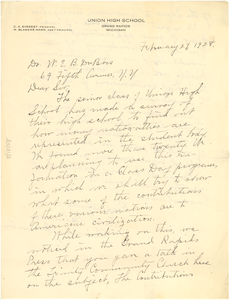 UNION HIGH SCHOOL
GRAND RAPIDS
MICHIGAN
February 28 1928
Dr. W. E. B. DuBois
69 Fifth Avenue, N.Y.
Dear Sir:
The senior class of Union High
School has made a survey of
how many nationalities are
represented in the student body
We found more than twenty. We
are planning to use this in-
formation in a Class Day program,
in which we shall try to show
what some of the contributions
of these various nations are to
American civilization.
While working on this, we
noticed in the Grand Rapids
Press that you gave a talk in
the Trinity Community Church here
on the subject, The Contributions